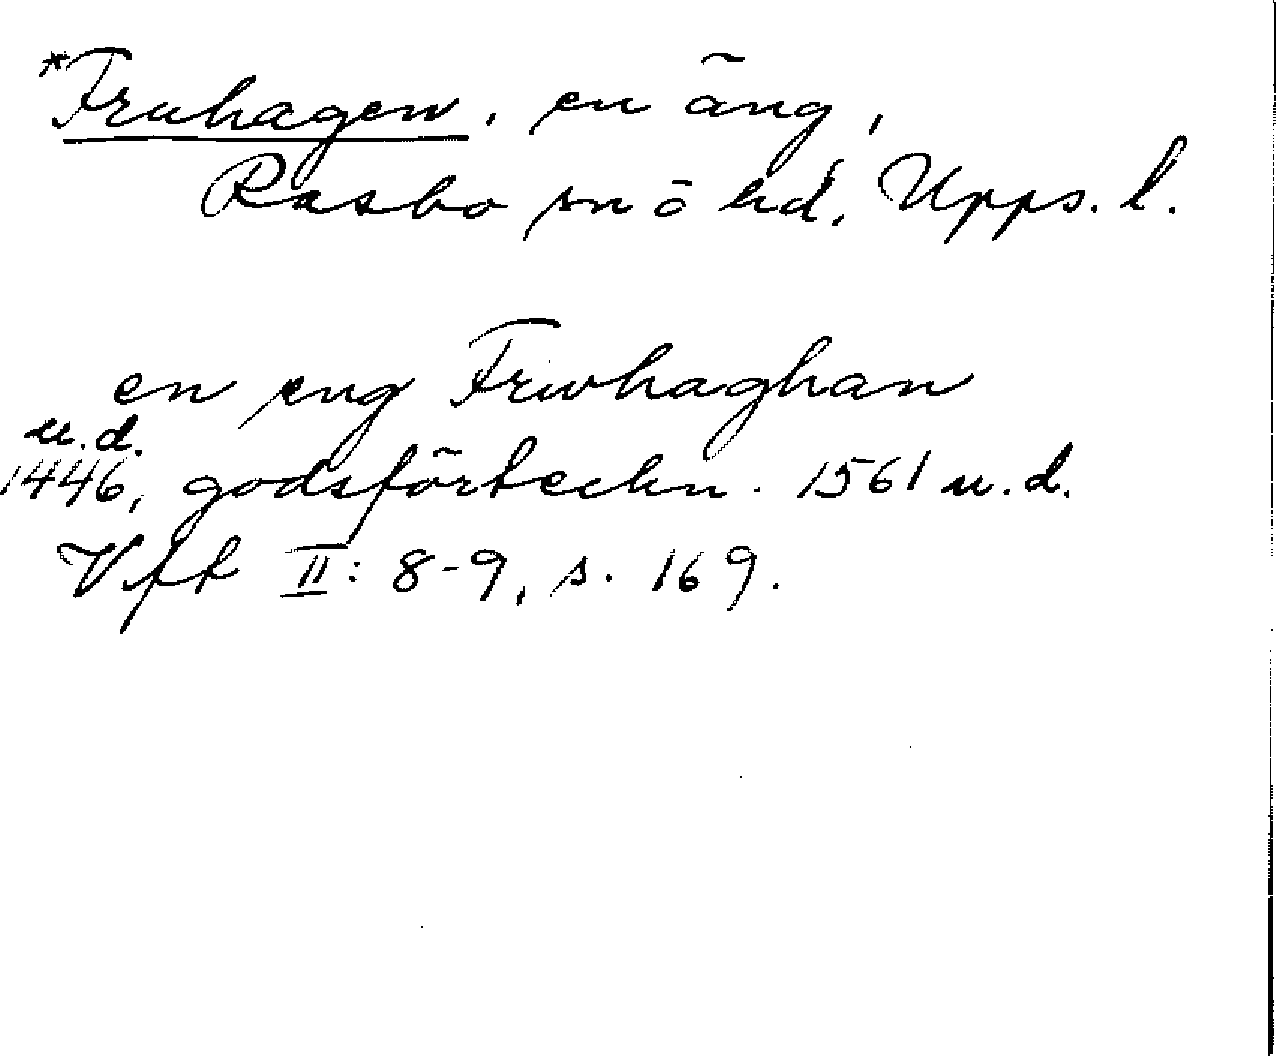 *Fruhagen, en äng,
Rasbo sn ō hd, Upps. l.
en eng Frwhaghan
u.d.
1446, godsförteckn. 1561 u.d.
Vft II: 8-9, s. 169.